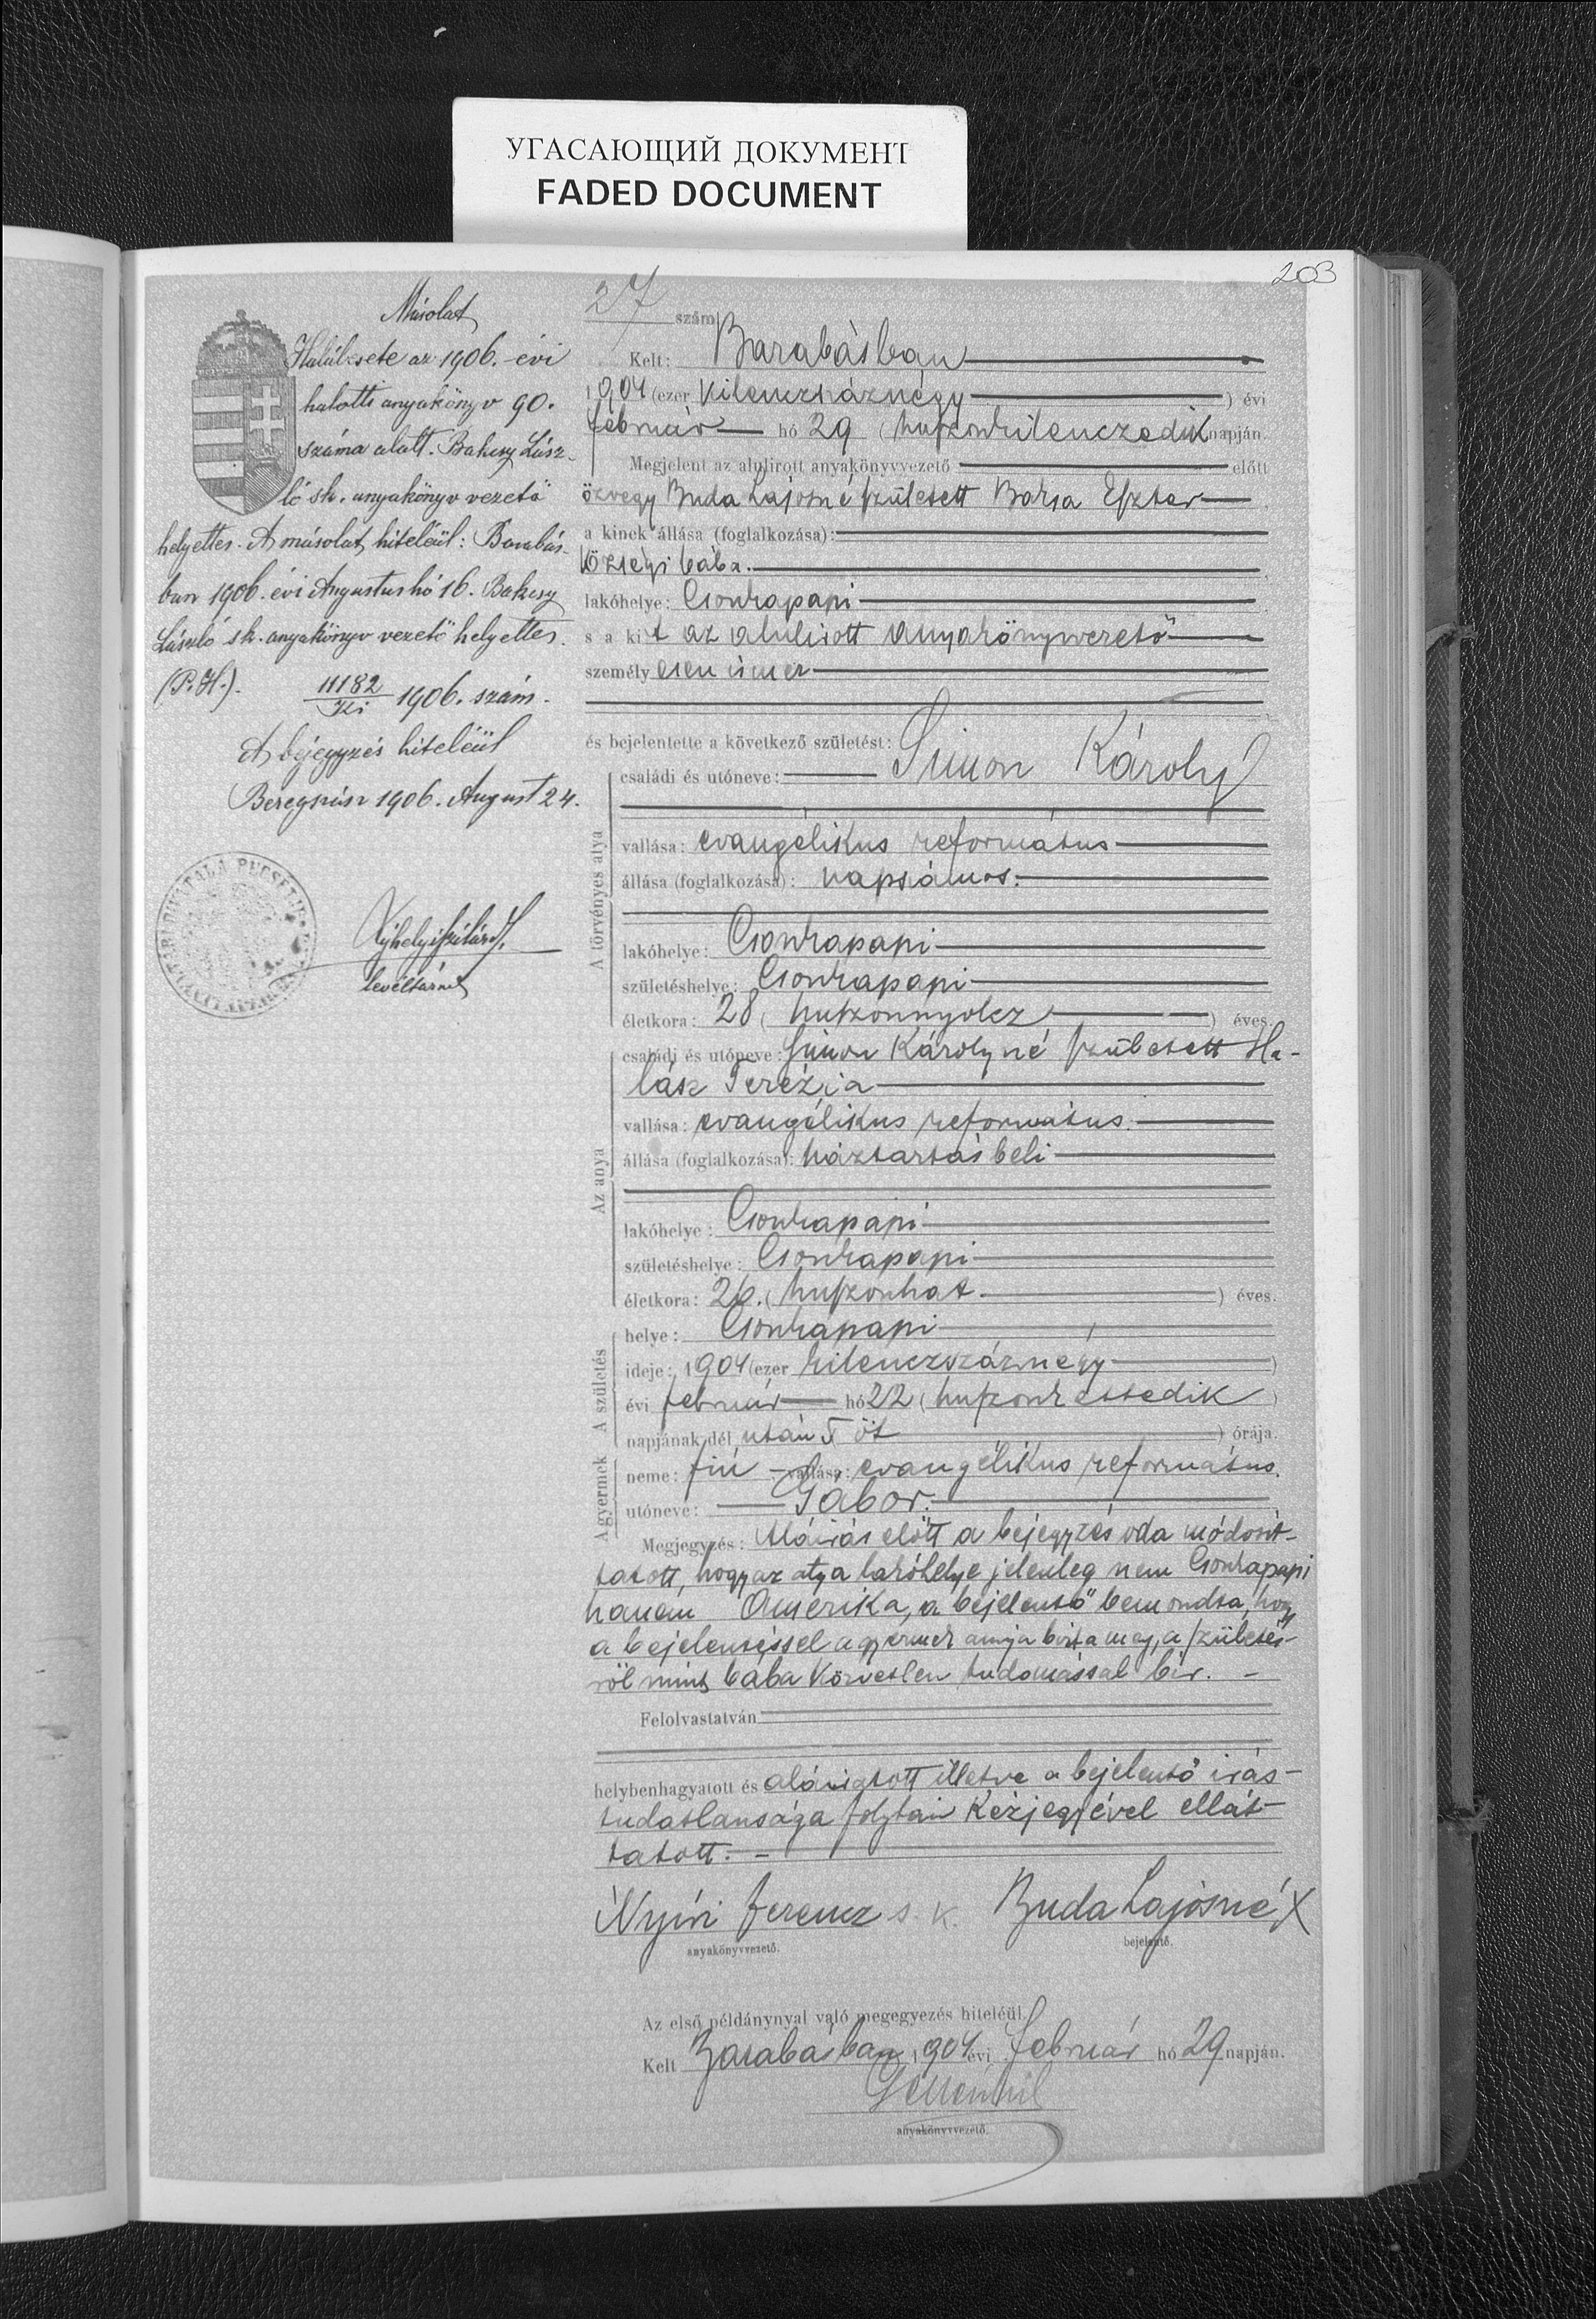 УГАСАЮЩИЙ ДОКУМЕНТ
FADED DOCUMENT
203
Másolat
Halálesete az 1906. évi
halotti anyakönyv 90.
száma alatt. Bakcsy Lász-
ló sk. anyakönyv vezető
helyettes. A másolat hiteléül: Barabás-
ban 1906. évi Augustus hó 16. Bakcsy
László sk. anyakönyv vezető helyettes.
(P.H.). 11182/Ki 1906. szám.
A bejegyzés hiteléül
Beregszász 1906. August 24.
levéltárnok
27 szám
Kelt: Barabásban
1904 (ezer kilenczszáznégy) évi
február hó 29 (huszonkilenczedik napján.
Megjelent az alulirott anyakönyvvezető előtt
özvegy Buda Lajosné született Barsa Eszter
a kinek állása (foglalkozása):
községi bába.
lakóhelye: Csonkapapi
s a kit az alulirott anyakönyvvezető
személyesen ismer
és bejelentette a következő születést:
A törvényes atya
családi és utóneve: Simon Károly
vallása: evangélikus református
állása (foglalkozása): napszámos.
lakóhelye: Csonkapapi
születéshelye: Csonkapapi
életkora: 28 (huszonnyolcz) éves.
Az anya
családi és utóneve: Simon Károlyné született Ha-
lász Terézia
vallása: evangélikus református.
állása (foglalkozása): háztartásbeli
lakóhelye: Csonkapapi
születéshelye: Csonkapapi
életkora: 26. (huszonhat) éves.
A születés
helye: Csonkapapi
ideje: 1904 (ezer kilenczszáznégy)
évi február hó 22 (huszonkettedik)
napjának dél után 5 öt) órája.
A gyermek
neme: fiú vallása: evangélikus református.
utóneve: Gábor.
Megjegyzés: Aláirás előtt a bejegyzés oda módosit-
tatott, hogy az atya lakóhelye jelenleg nem Csonkapapi
hanem Amerika, a bejelentő bemondta, hogy
a bejelentéssel a gyermek annyja bizta meg, a születés-
ről mint bába közvetlen tudomással bir.
Felolvastatván
helybenhagyatott és aláiratott illetve a bejelentő irás-
tudatlansága folytán kézjegyével ellát-
tatott.
Nyíri Ferencz s. k. Buda Lajosné X
anyakönyvvezető. bejelentő.
Az első példánynyal való megegyezés hiteléül.
Kelt Barabásban 1904 évi február hó 29 napján.
anyakönyvvezető.